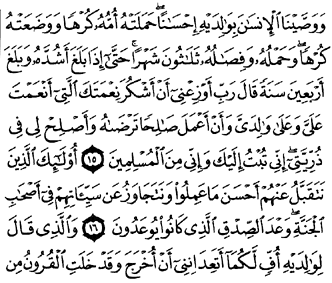 وَوَصَّيْنَا ٱلْإِنسَٰنَ بِوَٰلِدَيْهِ إِحْسَٰنًا ۖ حَمَلَتْهُ أُمُّهُۥ كُرْهًا وَوَضَعَتْهُ
كُرْهًا ۖ وَحَمْلُهُۥ وَفِصَٰلُهُۥ ثَلَٰثُونَ شَهْرًا ۚ حَتَّىٰٓ إِذَا بَلَغَ أَشُدَّهُۥ وَبَلَغَ
أَرْبَعِينَ سَنَةً قَالَ رَبِّ أَوْزِعْنِىٓ أَنْ أَشْكُرَ نِعْمَتَكَ ٱلَّتِىٓ أَنْعَمْتَ
عَلَىَّ وَعَلَىٰ وَٰلِدَىَّ وَأَنْ أَعْمَلَ صَٰلِحًا تَرْضَىٰهُ وَأَصْلِحْ لِى فِى
ذُرِّيَّتِىٓ ۖ إِنِّى تُبْتُ إِلَيْكَ وَإِنِّى مِنَ ٱلْمُسْلِمِينَ ١٥ أُو۟لَٰٓئِكَ ٱلَّذِينَ
نَتَقَبَّلُ عَنْهُمْ أَحْسَنَ مَا عَمِلُوا۟ وَنَتَجَاوَزُ عَن سَيِّـَٔاتِهِمْ فِىٓ أَصْحَٰبِ
ٱلْجَنَّةِ ۖ وَعْدَ ٱلصِّدْقِ ٱلَّذِى كَانُوا۟ يُوعَدُونَ ١٦ وَٱلَّذِى قَالَ
لِوَٰلِدَيْهِ أُفٍّ لَّكُمَآ أَتَعِدَانِنِىٓ أَنْ أُخْرَجَ وَقَدْ خَلَتِ ٱلْقُرُونُ مِن